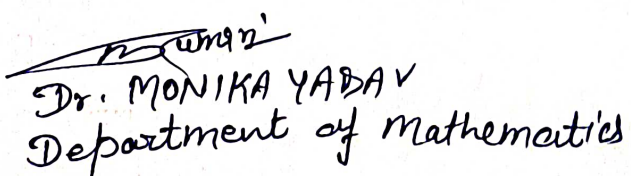 Dr. MONIKA YADAV
Department of Mathematics